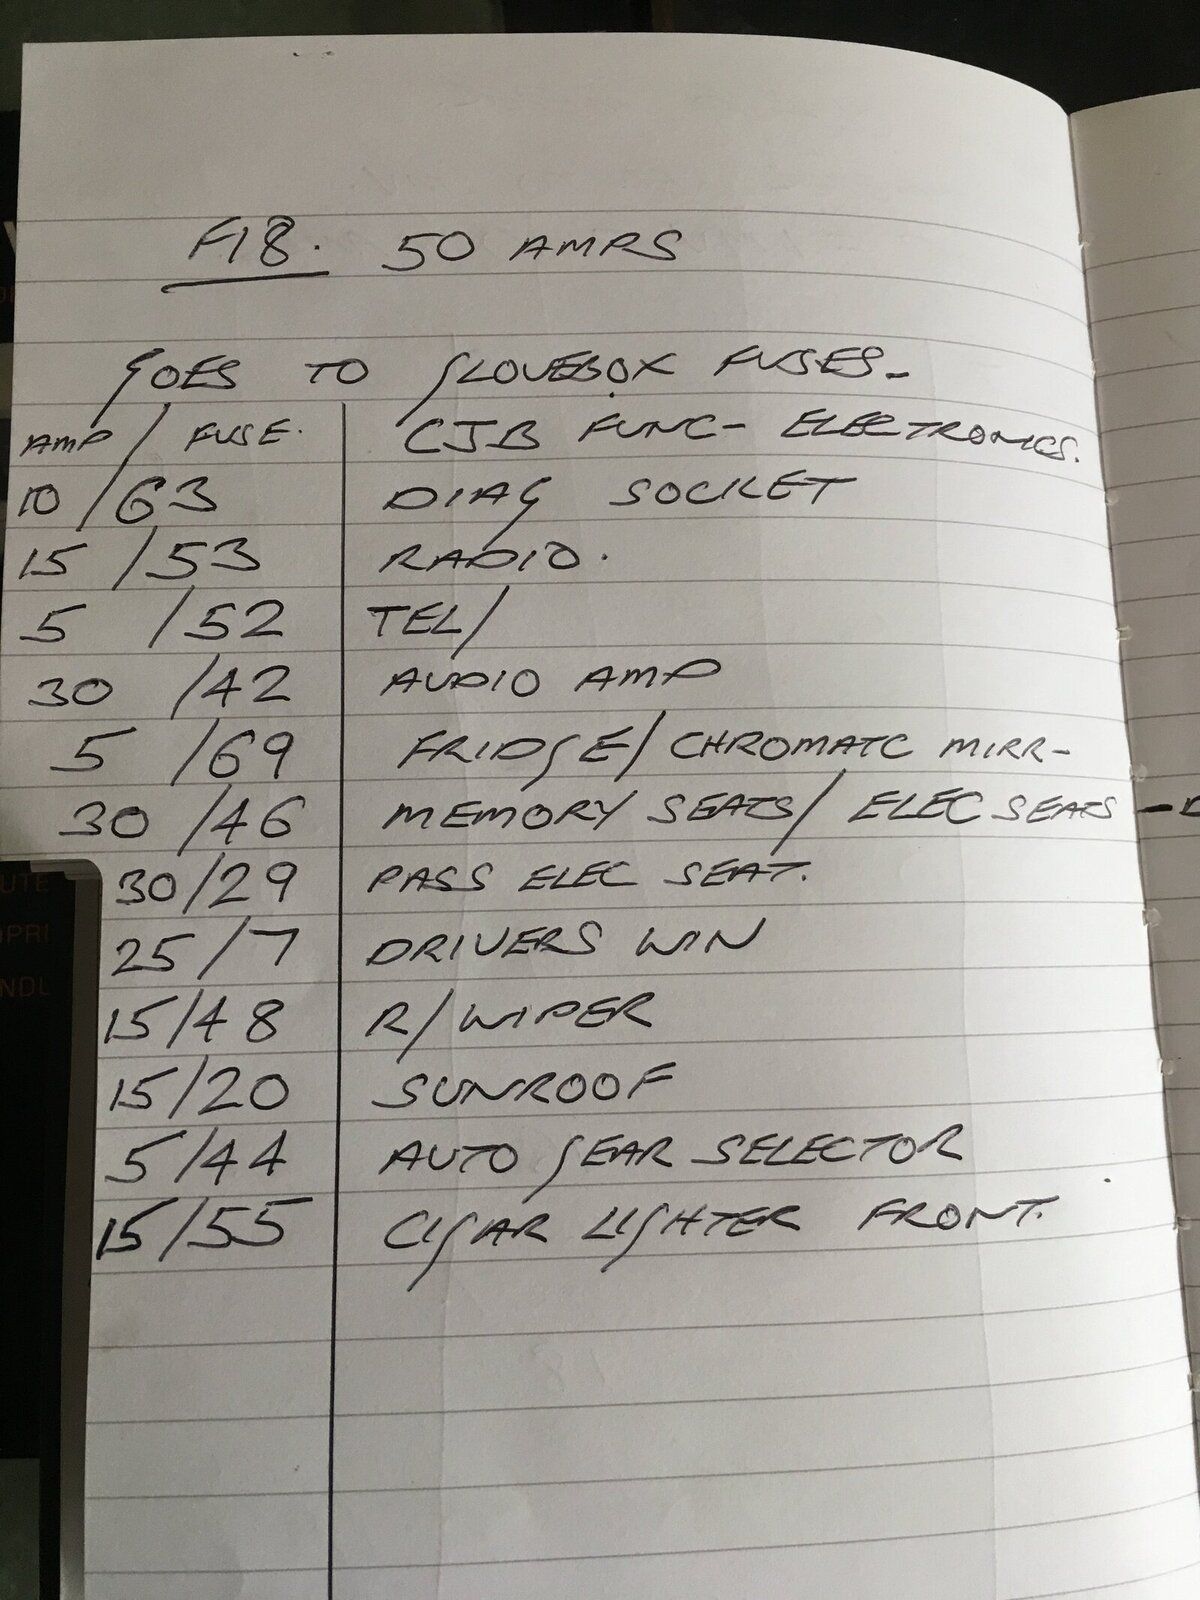 F18. 50 AMPS
GOES TO GLOVEBOX FUSES-
AMP / FUSE. CJB FUNC- ELECTRONICS.
10 / 63 DIAG SOCKET
15 / 53 RADIO.
5 / 52 TEL/
30 / 42 AUDIO AMP
5 / 69 FRIDGE/ CHROMATC MIRR-
30 / 46 MEMORY SEATS/ ELEC SEATS -
30/29 PASS ELEC SEAT.
25 / 7 DRIVERS WIN
15/48 R/WIPER
15/20 SUNROOF
5/44 AUTO GEAR SELECTOR
15/55 CIGAR LIGHTER FRONT.